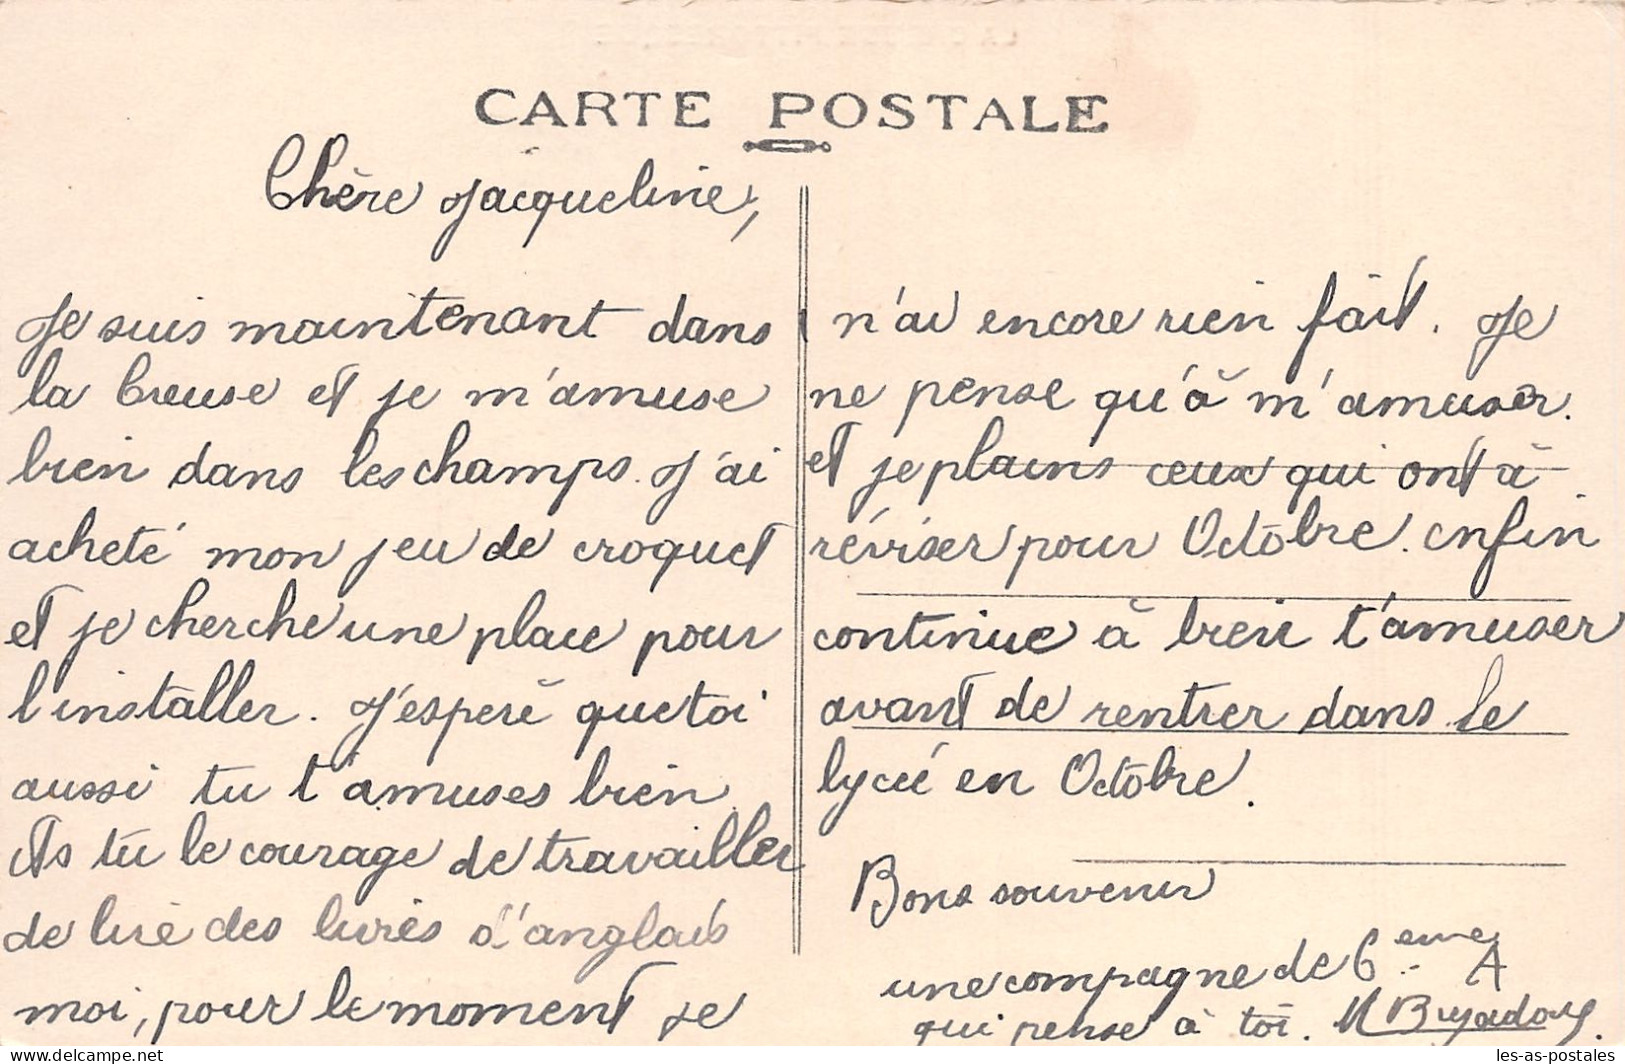 CARTE POSTALE
Chère Jacqueline,
Je suis maintenant dans
la Creuse et je m'amuse
bien dans les champs. J'ai
acheté mon jeu de croquet
et je cherche une place pour
l'installer. J'espère que toi
aussi tu t'amuses bien
As tu le courage de travailler
de lire des livres d'anglais
moi, pour le moment je
n'ai encore rien fait. Je
ne pense qu'à m'amuser.
et je plains ceux qui ont à
réviser pour Octobre. Enfin
continue à bien t'amuser
avant de rentrer dans le
lycée en Octobre.
Bons souvenir
une compagne de 6ème A
qui pense à toi. M
les-as-postales